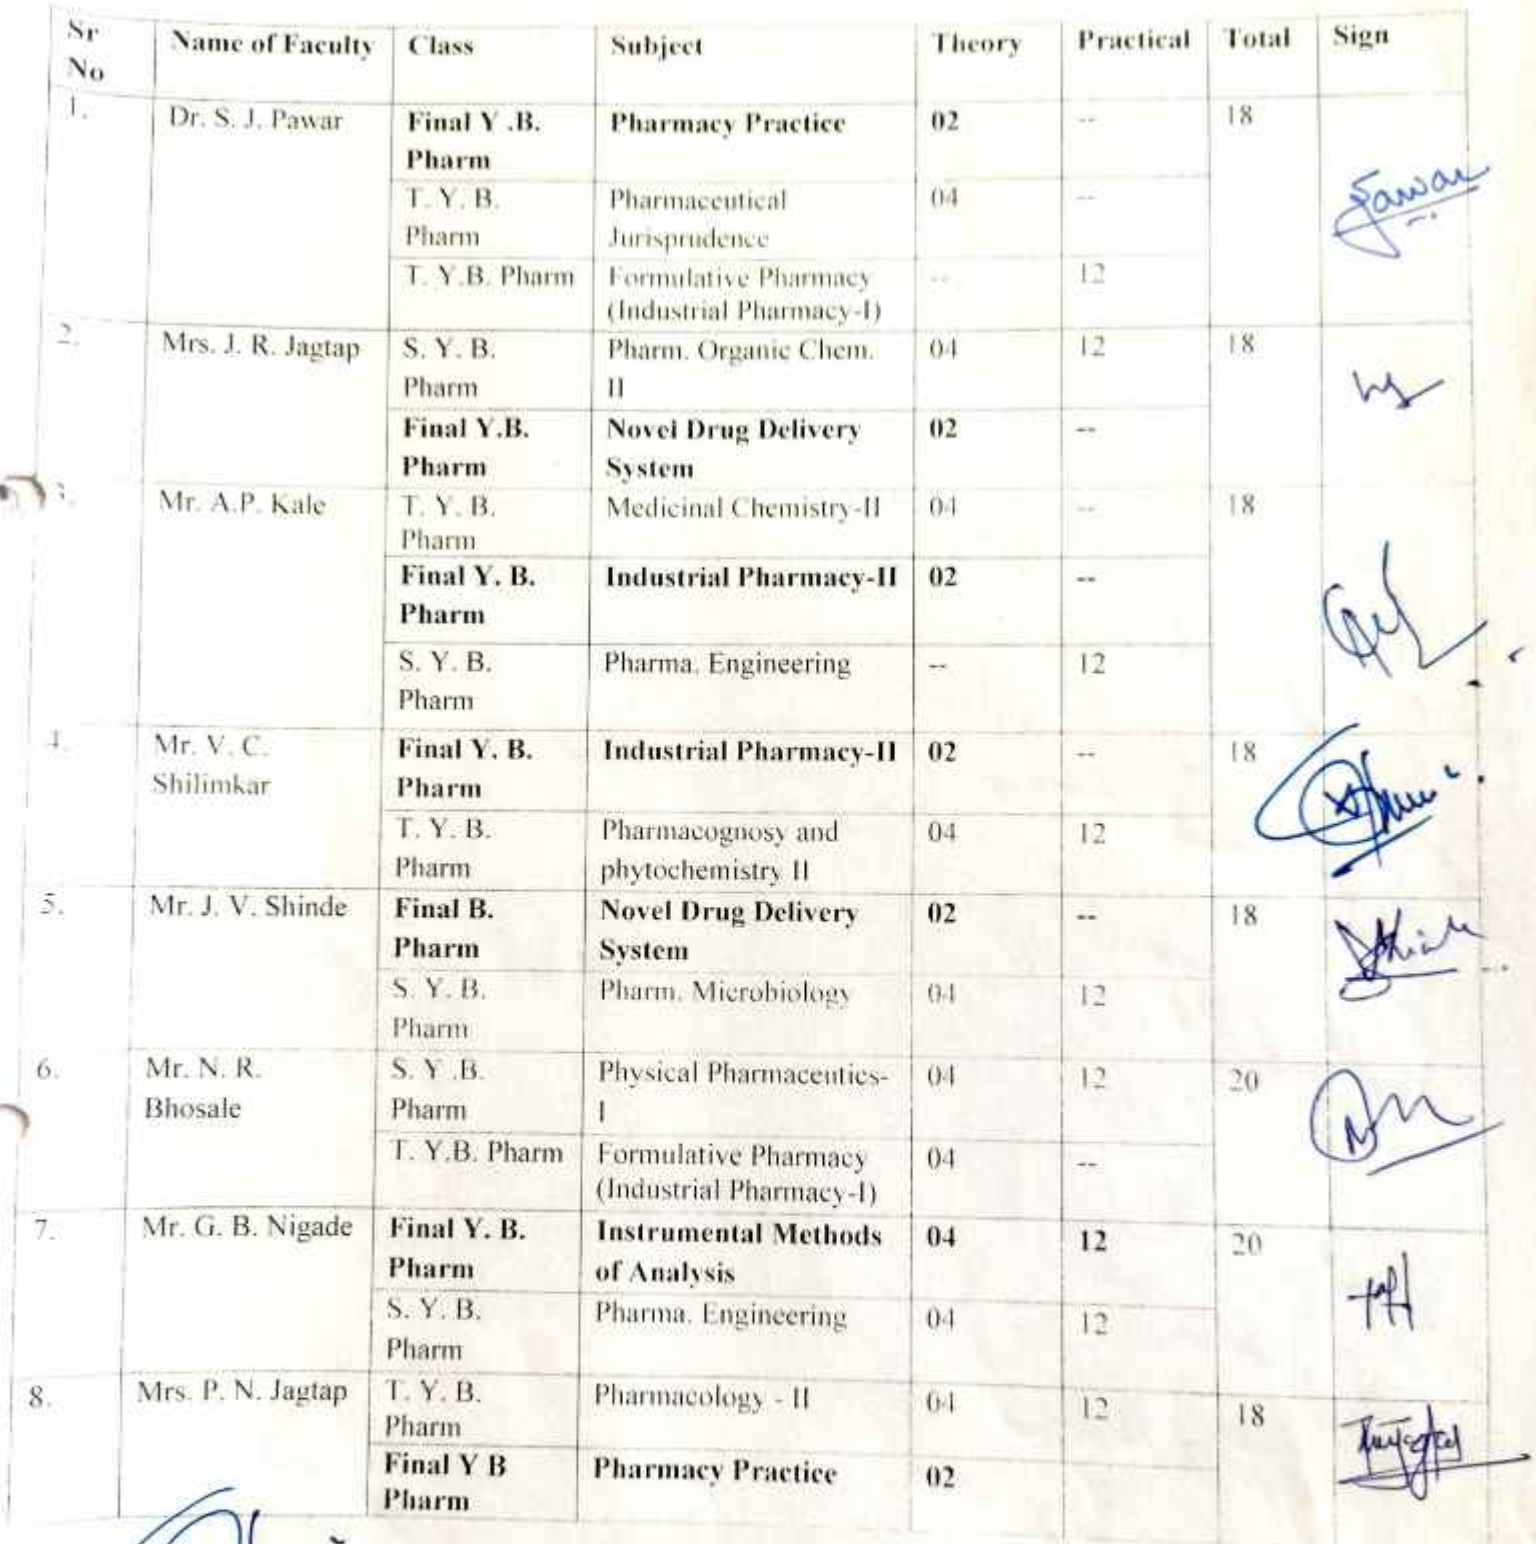 Sr No Name of Faculty Class Subject Theory Practical Total Sign
1. Dr. S. J. Pawar Final Y .B. Pharm Pharmacy Practice 02 -- 18 Pawar
T. Y. B. Pharm Pharmaceutical Jurisprudence 04 --
T. Y.B. Pharm Formulative Pharmacy (Industrial Pharmacy-I) -- 12
2. Mrs. J. R. Jagtap S. Y. B. Pharm Pharm. Organic Chem. II 04 12 18
Final Y.B. Pharm Novel Drug Delivery System 02 --
3. Mr. A.P. Kale T. Y. B. Pharm Medicinal Chemistry-II 04 -- 18
Final Y. B. Pharm Industrial Pharmacy-II 02 --
S. Y. B. Pharm Pharma. Engineering -- 12
4. Mr. V. C. Shilimkar Final Y. B. Pharm Industrial Pharmacy-II 02 -- 18
T. Y. B. Pharm Pharmacognosy and phytochemistry II 04 12
5. Mr. J. V. Shinde Final B. Pharm Novel Drug Delivery System 02 -- 18
S. Y. B. Pharm Pharm. Microbiology 04 12
6. Mr. N. R. Bhosale S. Y .B. Pharm Physical Pharmaceutics-I 04 12 20
T. Y.B. Pharm Formulative Pharmacy (Industrial Pharmacy-I) 04 --
7. Mr. G. B. Nigade Final Y. B. Pharm Instrumental Methods of Analysis 04 12 20
S. Y. B. Pharm Pharma. Engineering 04 12
8. Mrs. P. N. Jagtap T. Y. B. Pharm Pharmacology - II 04 12 18
Final Y B Pharm Pharmacy Practice 02